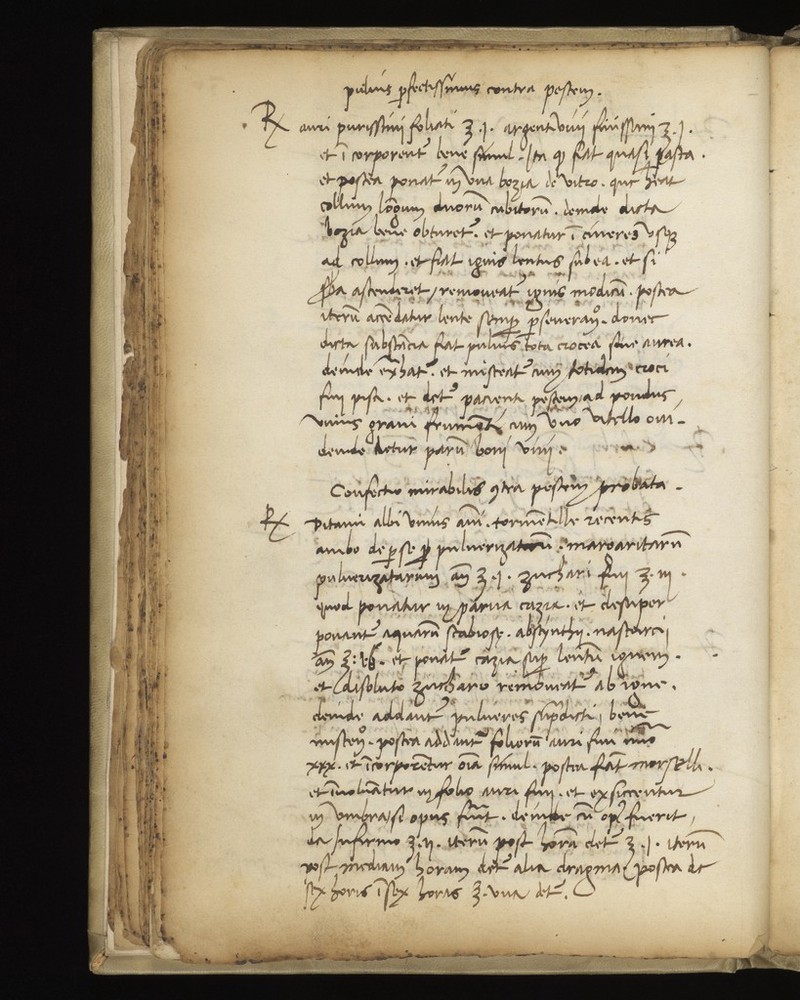 puluis pfectissimus contra pestem.
Rx auri purissimi foliati ʒ.j. argenti viui finissimi ʒ.j.
et īcorporent᷑ bene simul. Ita ꝙ fiat quasi pasta.
et postea ponat᷑ in vna bozia de vitro. que heat
collum lōgum duorū cubitorū. deinde dicta
bozia bene obturet᷑. et ponatur ī cineres vsqꝫ
ad collum. et fiat ignis lentus sub ea. et si
ascenderet / remoueat᷑ ignis modicū. postea
iterū accēdatur lente semꝑ ꝑseuerandᵒ. donec
dicta substācia fiat puluis tota crocea siue aurea.
deinde exhat᷑. et misceat᷑ cum totidem croci
fini pista. et det᷑ pacienti pestem ad pondus
vnius grani frumenti cum vno vitello oui.
deinde detur parū boni vini
Confectio mirabilis ꝯtra pestem probata.
Rx Ditami albi vnius anī. tormētille recentis
ambo de ꝑ se pulverizatorū. margaritarū
pulverizatarum aā ʒ.j. zuchari fini ʒ.iij.
quod ponatur in parua cazia. et desuper
ponant᷑ aquarū scabiose. absynthij. nasturcij
aā ʒ. et ponat᷑ cazia suꝑ lentū ignem.
et disoluto zucharo remoueat᷑ ab igne.
deinde addant᷑ pulueres sup̄dicti, bene
miscendᵒ. postea addant᷑ foliorū auri fini nūo
xxx. et īcorporētur oīa simul. postea fiāt morselli.
et īuoluātur in folio auri fini. et exsiccentur
in vmbra, si opus fuerit. deinde cū opꝰ fuerit,
da Infirmo ʒ.ij. iterū post horā det᷑ ʒ.j. iterū
post mediam horam det᷑ alia dragma, postea de
sex horis ī sex horas ʒ. vna det᷑.